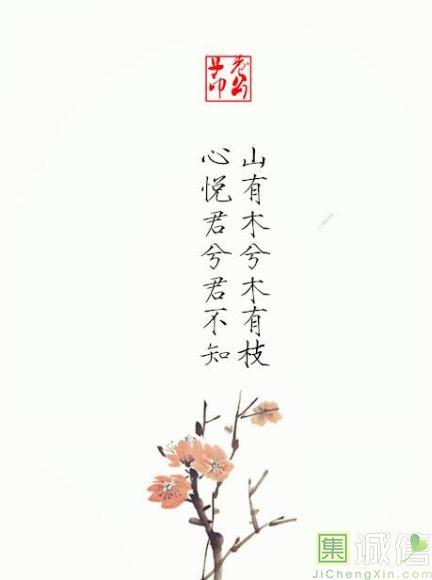 山有木兮木有枝
心悦君兮君不知
集 诚信
JiChengXin.com